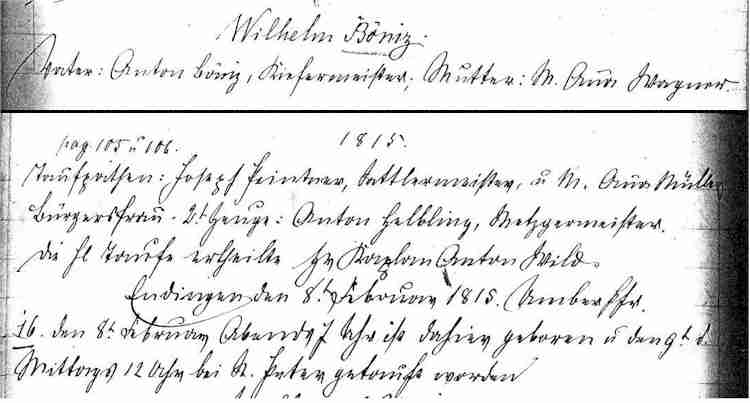 Wilhelm Böniz.
Vater: Anton Böniz, Kiefermeister; Mutter: M. Ana Wagner.
pag. 105 u 106. 1815.
Taufpathen: Joseph Peintner, Sattlermeister, u M. Ana Müller
Bürgersfrau - 2t Zeuge: Anton Helbling, Metzgermeister.
Die hl Taufe ertheilte Hr Kaplan Anton Wild.
Endingen den 8t Februar 1815. Umber Pfr.
16. den 8t Februar Abends 7 Uhr ist dahier geboren u den 9t d.
Mittags 12 Uhr bei St. Peter getauft worden